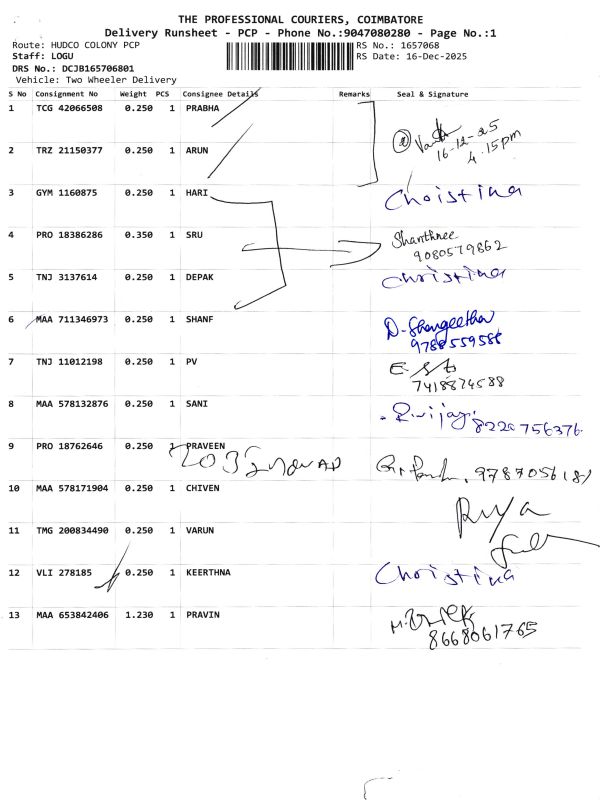 THE PROFESSIONAL COURIERS, COIMBATORE
Delivery Runsheet - PCP - Phone No.:9047080280 - Page No.:1
Route: HUDCO COLONY PCP RS No.: 1657068
Staff: LOGU RS Date: 16-Dec-2025
DRS No.: DCJB165706801
Vehicle: Two Wheeler Delivery
S No Consignment No Weight PCS Consignee Details Remarks Seal & Signature
1 TCG 42066508 0.250 1 PRABHA
16-12-25
4.15pm
2 TRZ 21150377 0.250 1 ARUN
3 GYM 1160875 0.250 1 HARI Christina
4 PRO 18386286 0.350 1 SRU Shanthnee
9080579862
5 TNJ 3137614 0.250 1 DEPAK Christina
6 MAA 711346973 0.250 1 SHANF D-Shangeetha
9788559586
7 TNJ 11012198 0.250 1 PV
7418874588
8 MAA 578132876 0.250 1 SANI
8220756376
9 PRO 18762646 0.250 1 PRAVEEN
10 MAA 578171904 0.250 1 CHIVEN
11 TMG 200834490 0.250 1 VARUN
12 VLI 278185 0.250 1 KEERTHNA Christina
13 MAA 653842406 1.230 1 PRAVIN
8668061765